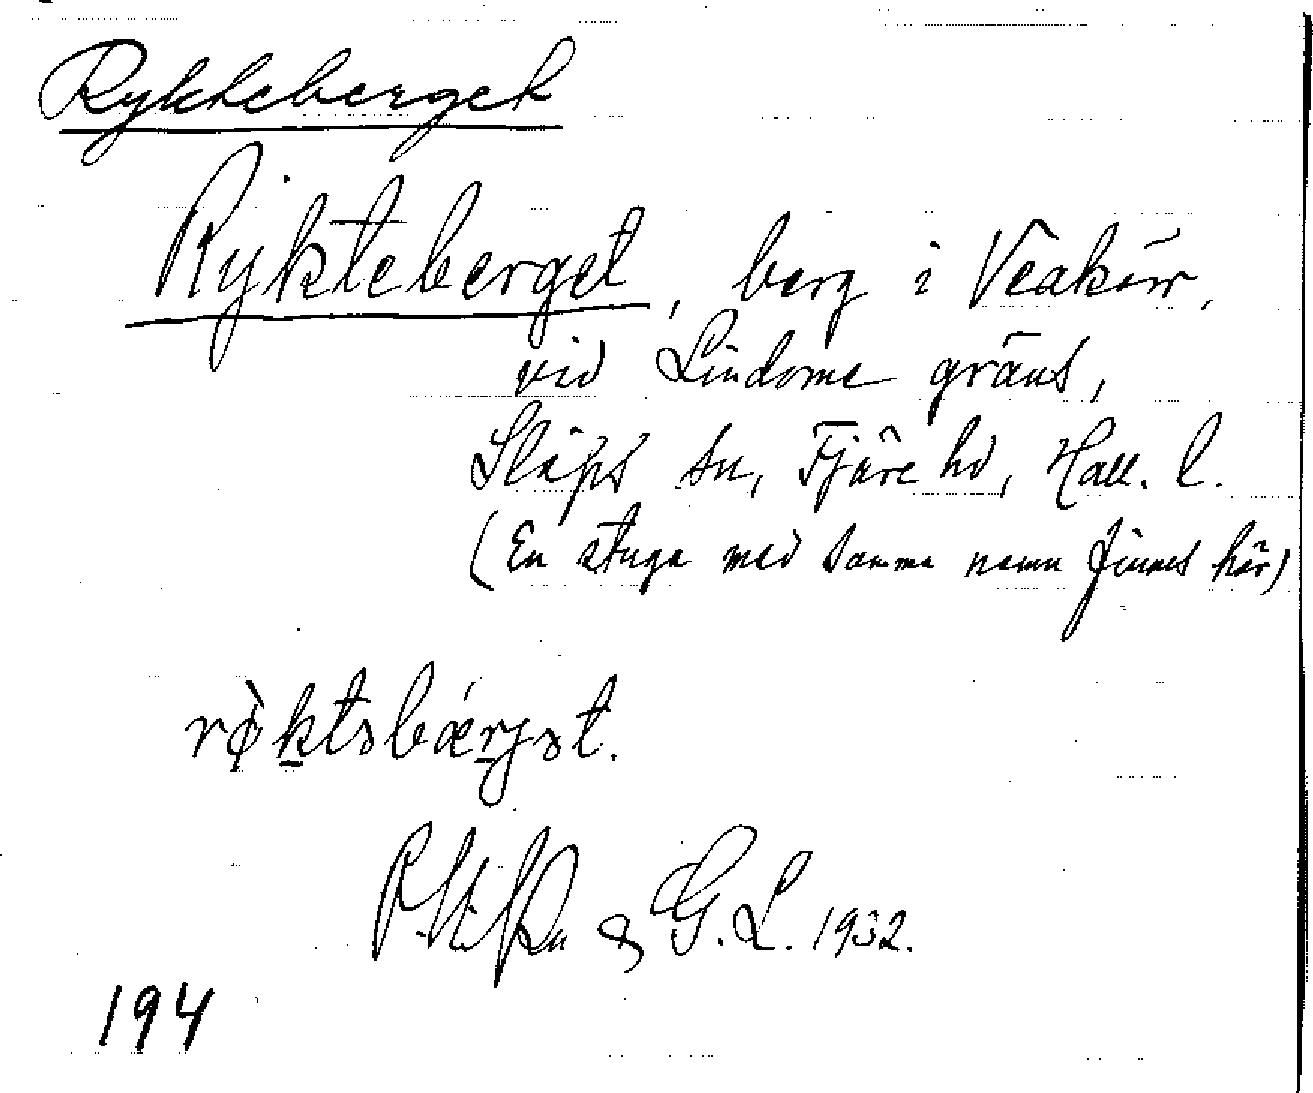 Rykteberget
Rykteberget, berg i Veakärr,
vid Lindome gräns,
Släps sn, Fjäre hd, Hall. l.
(En stuga med samma namn finnes här)
rø̀ktəbǽrjət.
& G. L. 1932.
194